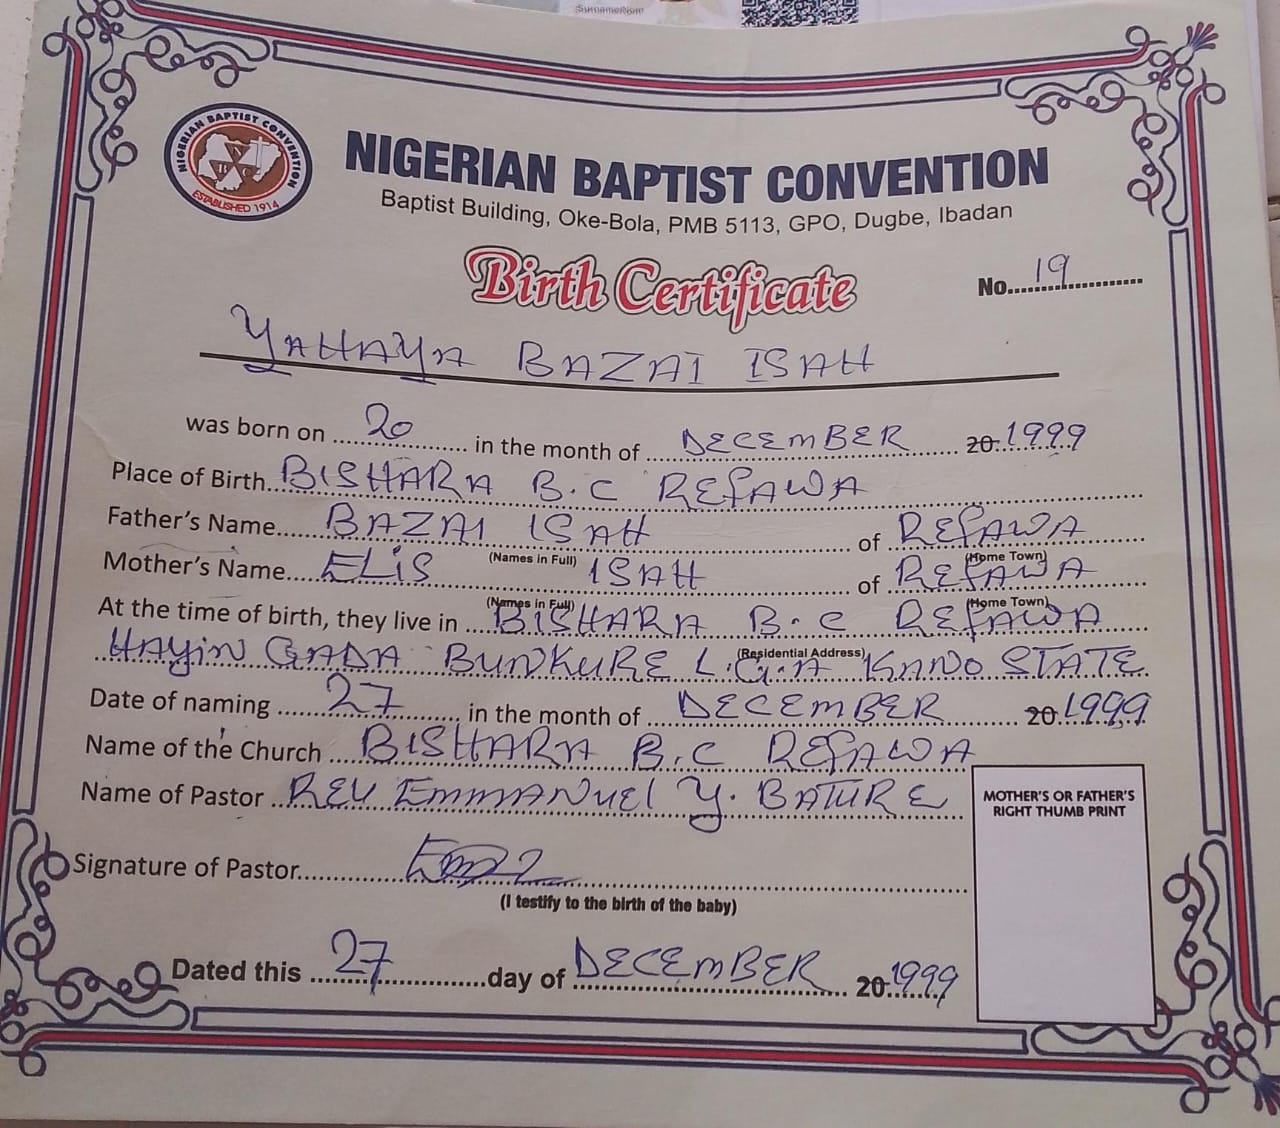 SurnameNom
NIGERIAN BAPTIST CONVENTION
ESTABLISHED 1914
NIGERIAN BAPTIST CONVENTION
Baptist Building, Oke-Bola, PMB 5113, GPO, Dugbe, Ibadan
Birth Certificate
No......19......
YAHAYA BAZAI ISAH
was born on ......20...... in the month of ......DECEMBER...... 20.1999
Place of Birth..BISHARA B.C REFAWA......
Father's Name......BAZAI ISAH...... of REFAWA......
(Names in Full) (Home Town)
Mother's Name....ELIS ISAH...... of REFAWA......
(Names in Full) (Home Town)
At the time of birth, they live in ....BISHARA B.C REFAWA....
(Residential Address)
HAYIN GADA BUNKURE L.G.A KANO STATE
Date of naming ......27...... in the month of ......DECEMBER...... 20.1999
Name of the Church ....BISHARA B.C REFAWA
Name of Pastor ..REV EMMANUEL Y. BATURE
Signature of Pastor......
(I testify to the birth of the baby)
MOTHER'S OR FATHER'S
RIGHT THUMB PRINT
Dated this ......27......day of DECEMBER...... 20.1999